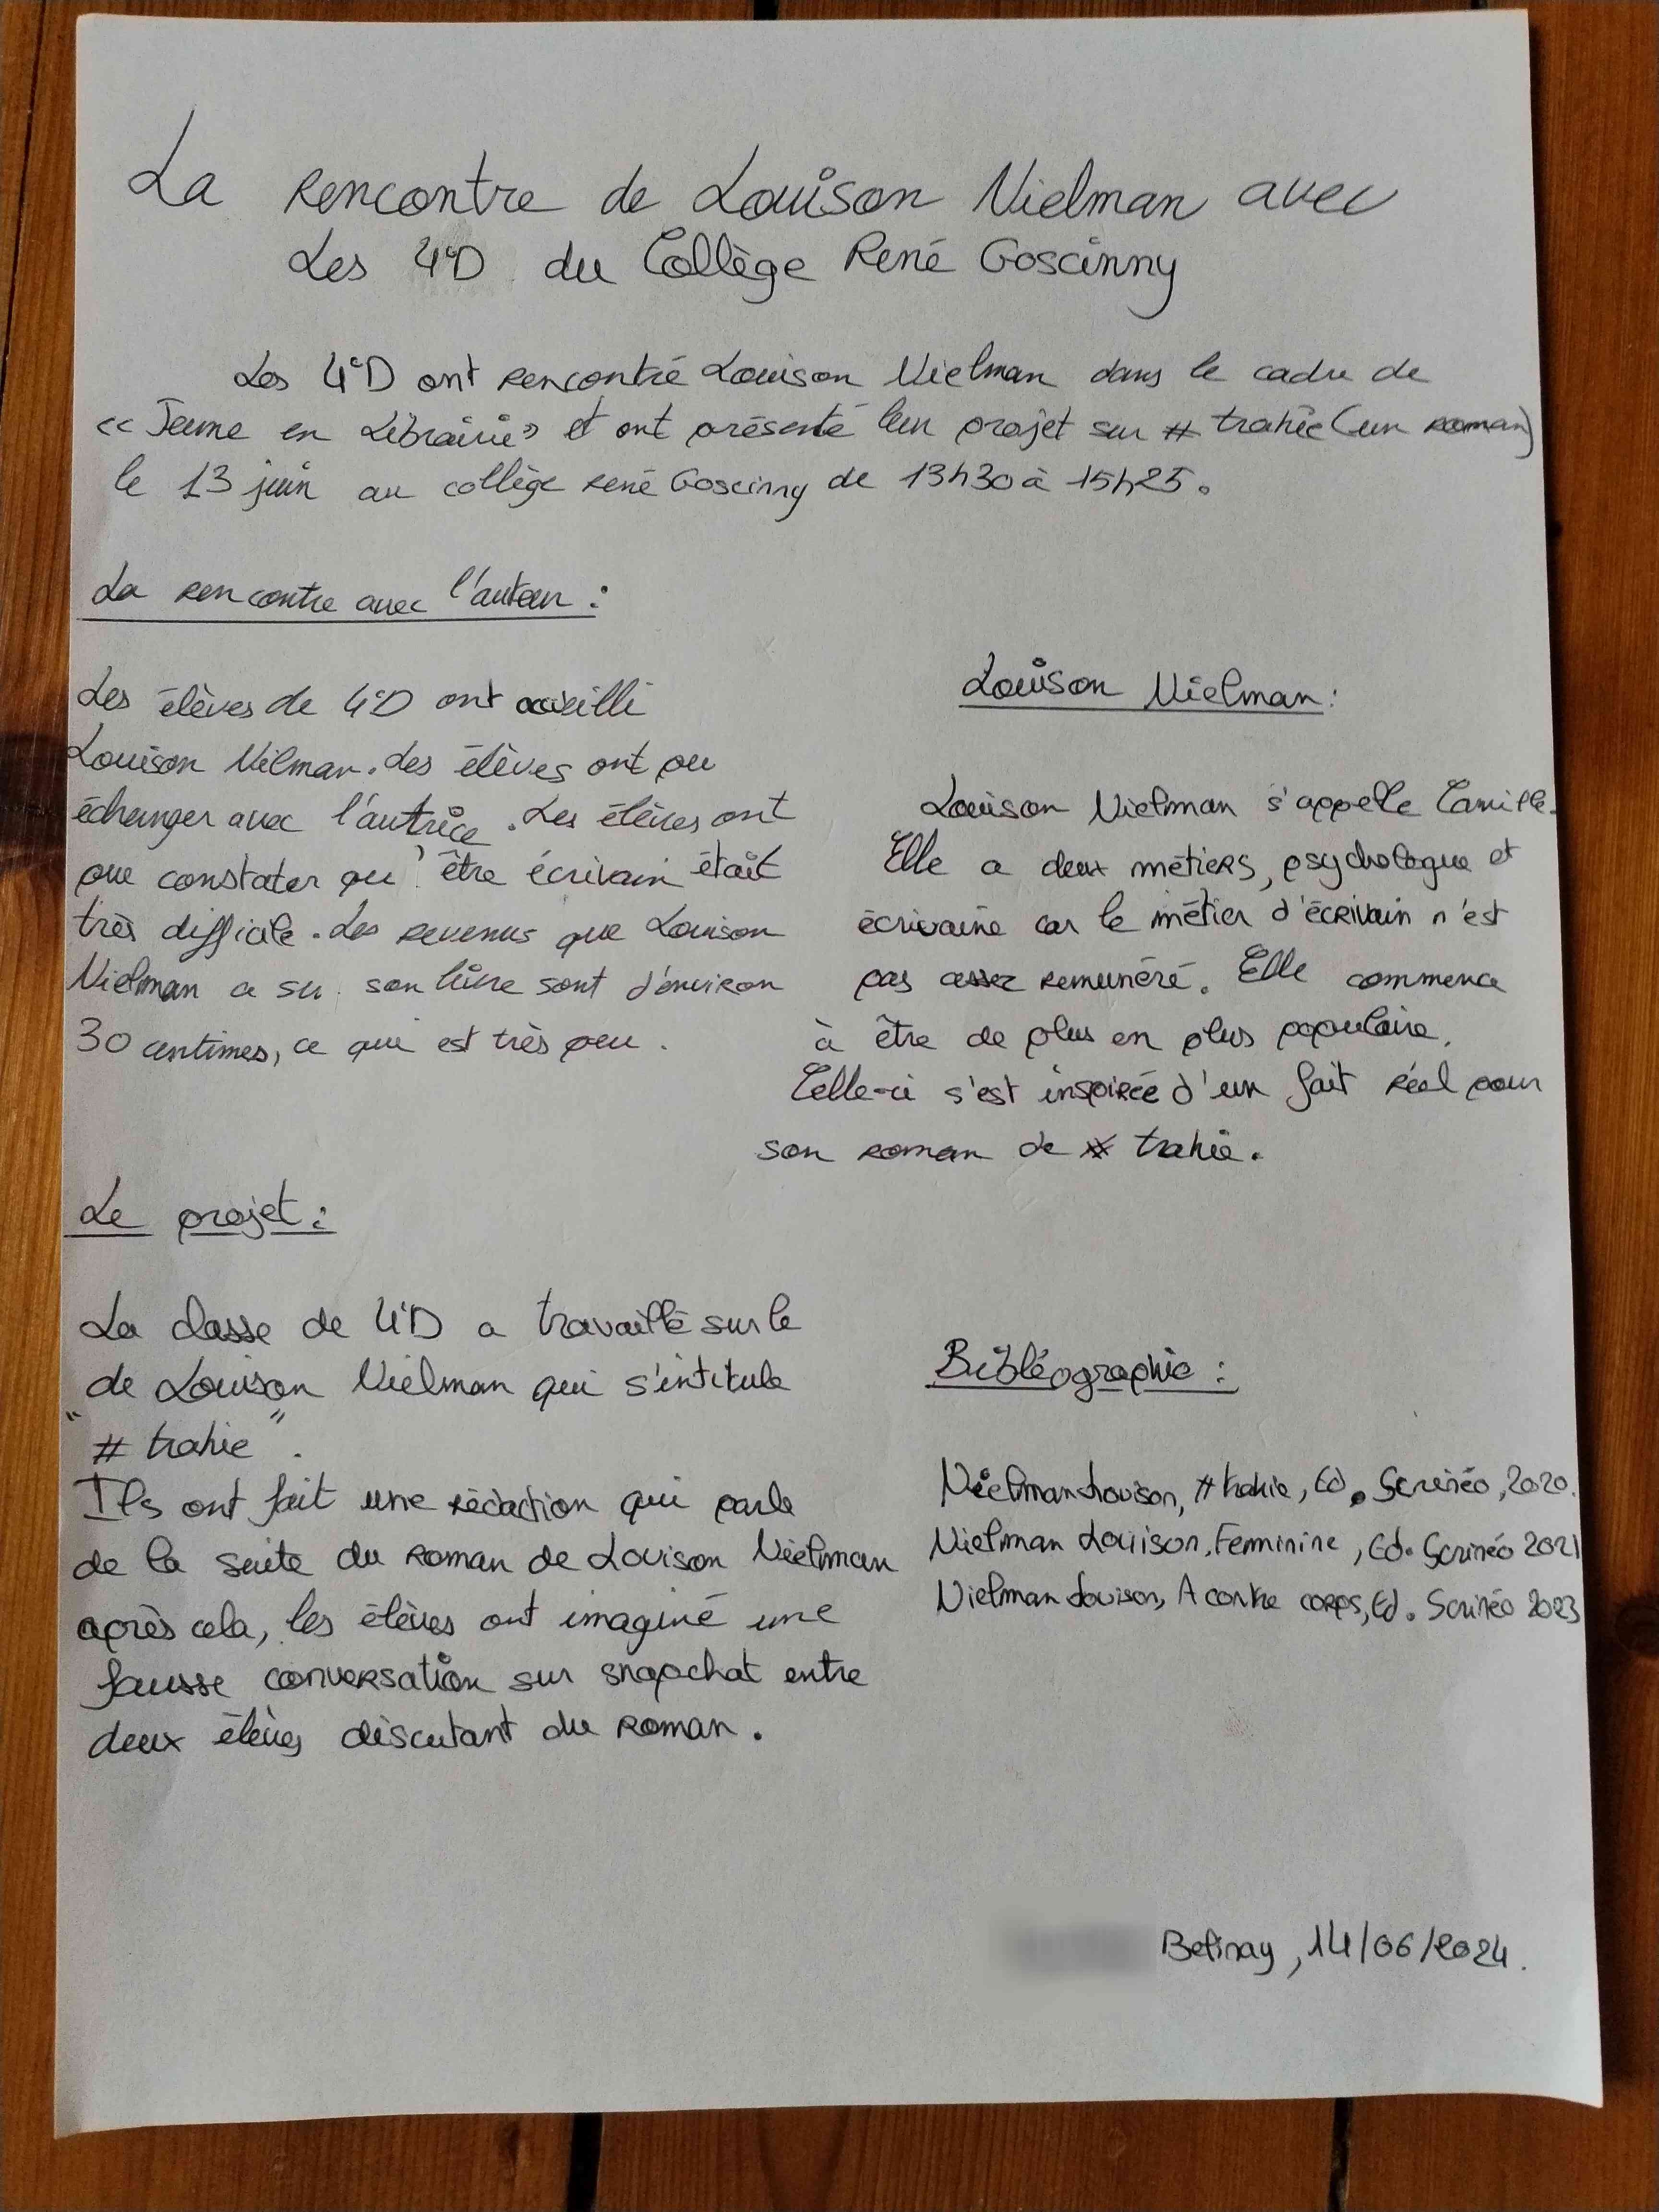 La rencontre de Louison Nielman avec
Les 4°D du Collège René Goscinny
Les 4°D ont rencontré Louison Nielman dans le cadre de
« Jeune en Librairie » et ont présenté leur projet sur # trahie (un roman)
le 13 juin au collège René Goscinny de 13h30 à 15h25.
La rencontre avec l'auteur :
Les élèves de 4°D ont accueilli
Louison Nilman. Les élèves ont pu
échanger avec l'autrice. Les élèves ont
pu constater qu'être écrivain était
très difficile. Les revenus que Louison
Nielman a su son livre sont d'environ
30 centimes, ce qui est très peu.
Louison Nielman :
Louison Nielman s'appelle Camille.
Elle a deux métiers, psychologue et
écrivaine car le métier d'écrivain n'est
pas assez remunéré. Elle commence
à être de plus en plus populaire.
Celle-ci s'est inspirée d'un fait réel pour
son roman de # trahie.
Le projet :
La classe de 4°D a travaillé sur le
de Louison Nielman qui s'intitule
"# trahie".
Ils ont fait une rédaction qui parle
de la suite du roman de Louison Nielman
après cela, les élèves ont imaginé une
fausse conversation sur snapchat entre
deux élèves discutant du roman.
Bibliographie :
Nielman Louison, # trahie, Ed. Scrinéo, 2020.
Nielman Louison, Feminine, Ed. Scrinéo 2021
Nielman Louison, A contre corps, Ed. Scrinéo 2023
Belinay, 14/06/2024.